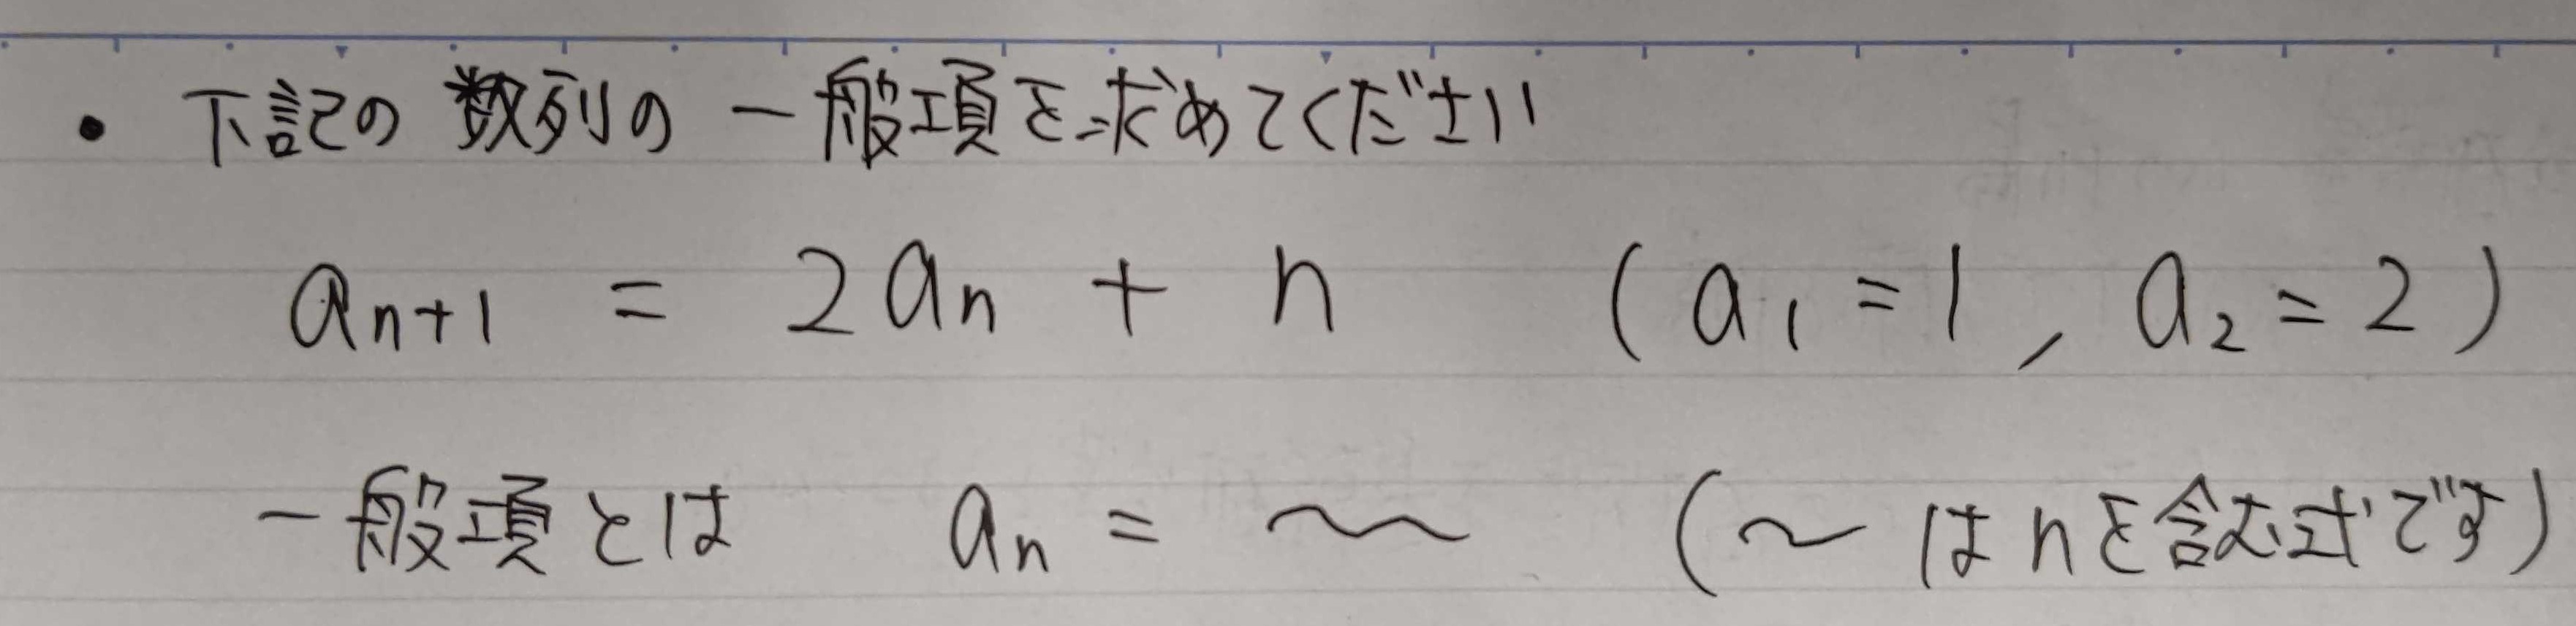 ・下記の数列の一般項を求めてください
aₙ₊₁ = 2aₙ + n (a₁ = 1, a₂ = 2)
一般項とは aₙ = 〜〜 (〜はnを含む式です)